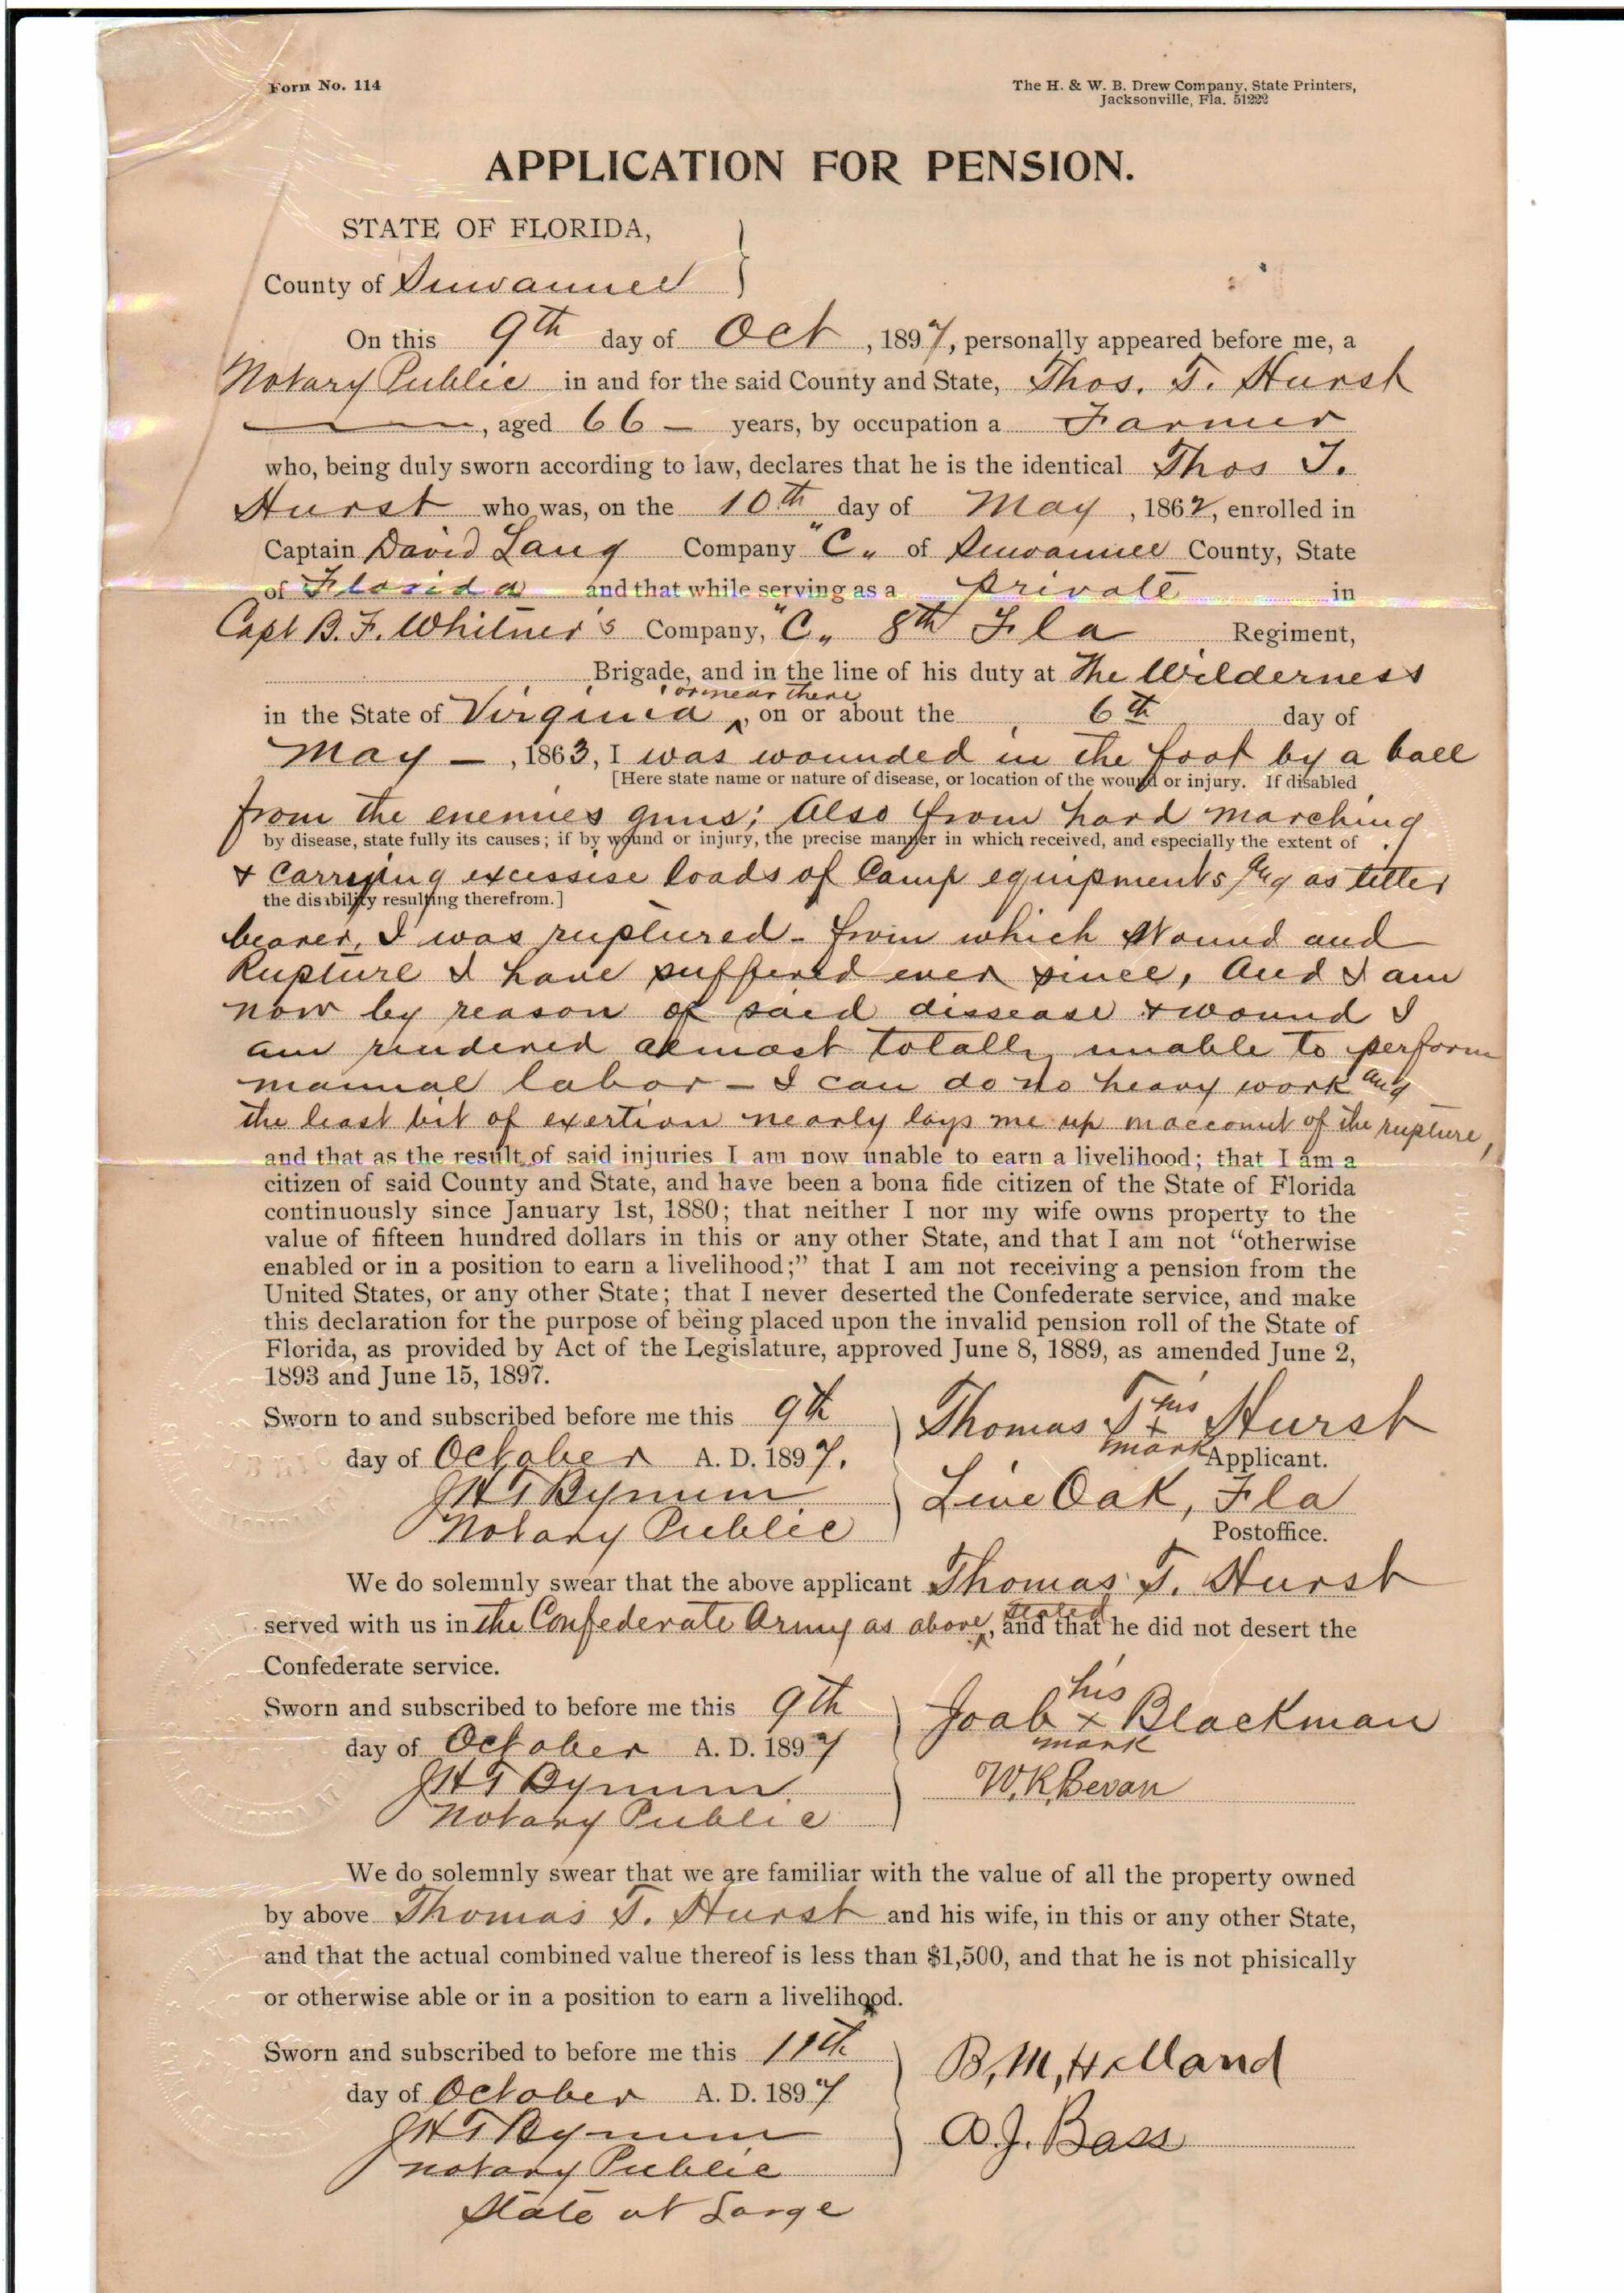 Form No. 114
The H. & W. B. Drew Company, State Printers,
Jacksonville, Fla. 51222
APPLICATION FOR PENSION.
STATE OF FLORIDA,
County of Suwannee
On this 9th day of Oct, 1897, personally appeared before me, a
Notary Public in and for the said County and State, Thos. T. Hurst
, aged 66 – years, by occupation a Farmer
who, being duly sworn according to law, declares that he is the identical Thos T.
Hurst who was, on the 10th day of May, 1862, enrolled in
Captain David Lang Company "C" of Suwannee County, State
of Florida and that while serving as a private in
Capt B. F. Whitner's Company, "C" 8th Fla Regiment,
Brigade, and in the line of his duty at The Wilderness
or near there
in the State of Virginia ^, on or about the 6th day of
May –, 1863, I was wounded in the foot by a ball
[Here state name or nature of disease, or location of the wound or injury. If disabled
from the enemies guns; Also from hard marching
by disease, state fully its causes; if by wound or injury, the precise manner in which received, and especially the extent of
& Carrying excessise loads of Camp equipments as litter
the disibility resulting therefrom.]
bearer, I was ruptured - from which Wound and
Rupture I have suffered ever since, And I am
now by reason of said dissease & wound I
am rendered almost totally unable to perform
manual labor – I can do no heavy work any
the least bit of exertion nearly lays me up on account of the rupture,
and that as the result of said injuries I am now unable to earn a livelihood; that I am a
citizen of said County and State, and have been a bona fide citizen of the State of Florida
continuously since January 1st, 1880; that neither I nor my wife owns property to the
value of fifteen hundred dollars in this or any other State, and that I am not "otherwise
enabled or in a position to earn a livelihood;" that I am not receiving a pension from the
United States, or any other State; that I never deserted the Confederate service, and make
this declaration for the purpose of being placed upon the invalid pension roll of the State of
Florida, as provided by Act of the Legislature, approved June 8, 1889, as amended June 2,
1893 and June 15, 1897.
Sworn to and subscribed before me this 9th
day of October A. D. 1897.
JHT Bynum
Notary Public
Thomas T. his x mark Hurst
Applicant.
Live Oak, Fla
Postoffice.
We do solemnly swear that the above applicant Thomas T. Hurst
served with us in the Confederate Army as above ^ stated, and that he did not desert the
Confederate service.
Sworn and subscribed to before me this 9th
day of October A. D. 1897
JHT Bynum
Notary Public
Joab his x mark Blackman
W. R. Bevan
We do solemnly swear that we are familiar with the value of all the property owned
by above Thomas T. Hurst and his wife, in this or any other State,
and that the actual combined value thereof is less than $1,500, and that he is not phisically
or otherwise able or in a position to earn a livelihood.
Sworn and subscribed to before me this 11th
day of October A. D. 1897
JHT Bynum
Notary Public
State at Large
B, M, Holland
A. J. Bass